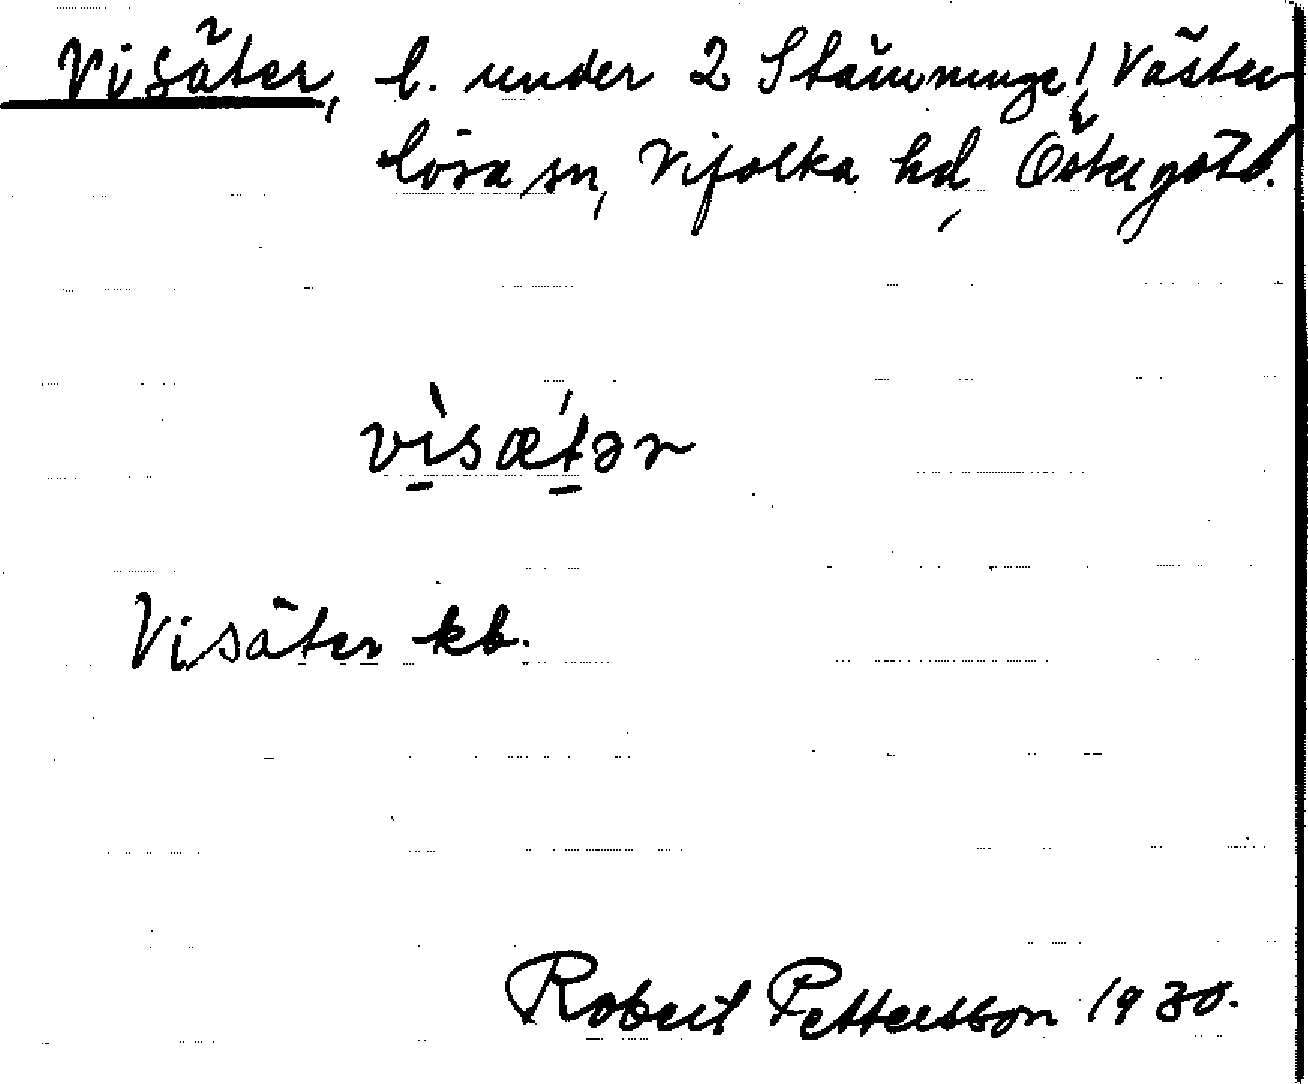 Visäter, l. under 2 Stämninge, Väster
lösa sn, Vifolka hd, Östergötl.
vìsæ̀tər
Visäter kb.
Robert Pettersson 1930.